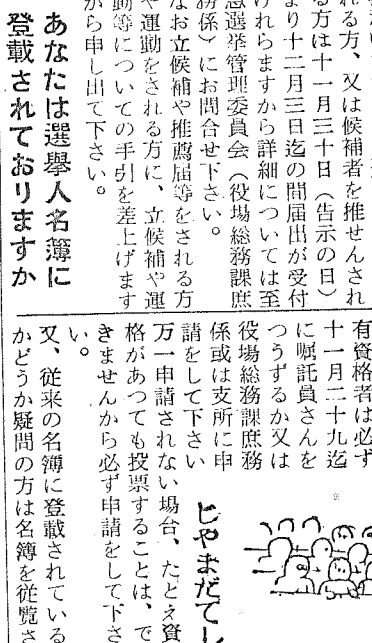 れる方、又は候補者を推せんされ
る方は十一月三十日(告示の日)
より十二月三日迄の間届出が受付
けれらますから詳細については至
急選挙管理委員会(役場総務課庶
務係)にお問合せ下さい。
なお立候補や推薦届等をされる方
や運動をされる方に、立候補や運
動等についての手引を差上げます
から申し出て下さい。
あなたは選擧人名簿に
登載されておりますか
有資格者は必ず
十一月二十九迄
に嘱託員さんを
つうずるか又は
役場総務課庶務
係或は支所に申
請をして下さい
万一申請されない場合、たとえ資
格があつても投票することは、で
きませんから必ず申請をして下さ
い。
又、従来の名簿に登載されている
かどうか疑問の方は名簿を従覧さ
じやまだてし